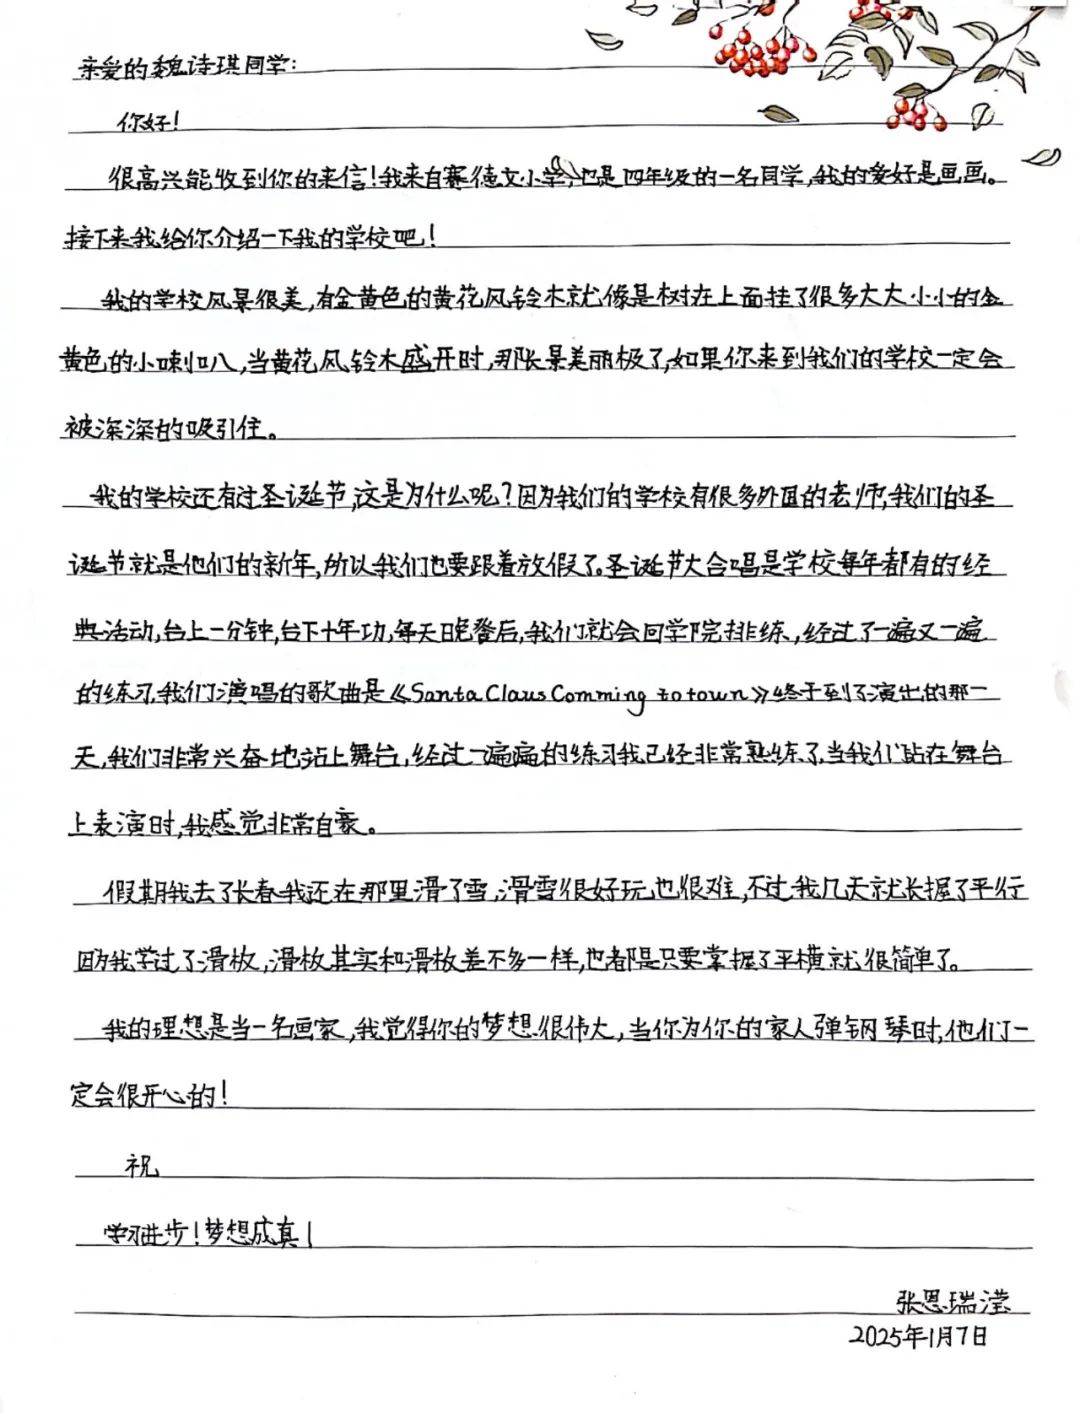 亲爱的魏诗琪同学:
你好!
很高兴能收到你的来信!我来自赛德文小学,也是四年级的一名同学,我的爱好是画画。
接下来我给你介绍一下我的学校吧!
我的学校风景很美,有金黄色的黄花风铃木就像是树在上面挂了很多大大小小的金
黄色的小喇叭,当黄花风铃木盛开时,那长景美丽极了,如果你来到我们的学校一定会
被深深的吸引住。
我的学校还有过圣诞节,这是为什么呢?因为我们的学校有很多外国的老师,我们的圣
诞节就是他们的新年,所以我们也要跟着放假了。圣诞节大合唱是学校每年都有的经
典活动,台上一分钟,台下十年功,每天晚餐后,我们就会回学院排练,经过了一遍又一遍
的练习,我们演唱的歌曲是《Santa Claus Comming to town》终于到了演出的那一
天,我们非常兴奋地站上舞台,经过一遍遍的练习我已经非常熟练了,当我们站在舞台
上表演时,我感觉非常自豪。
假期我去了长春我还在那里滑了雪,滑雪很好玩也很难,不过我几天就长握了平行
因为我学过了滑板,滑板其实和滑板差不多一样,也都是只要掌握了平横就很简单了。
我的理想是当一名画家,我觉得你的梦想很伟大,当你为你的家人弹钢琴时,他们一
定会很开心的!
祝
学习进步!梦想成真!
张恩瑞滢
2025年1月7日